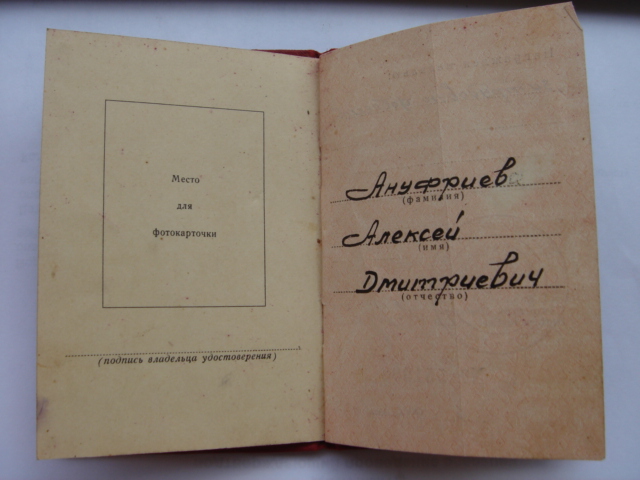 Место
для
фотокарточки
(подпись владельца удостоверения)
Ануфриев
(фамилия)
Алексей
(имя)
Дмитриевич
(отчество)